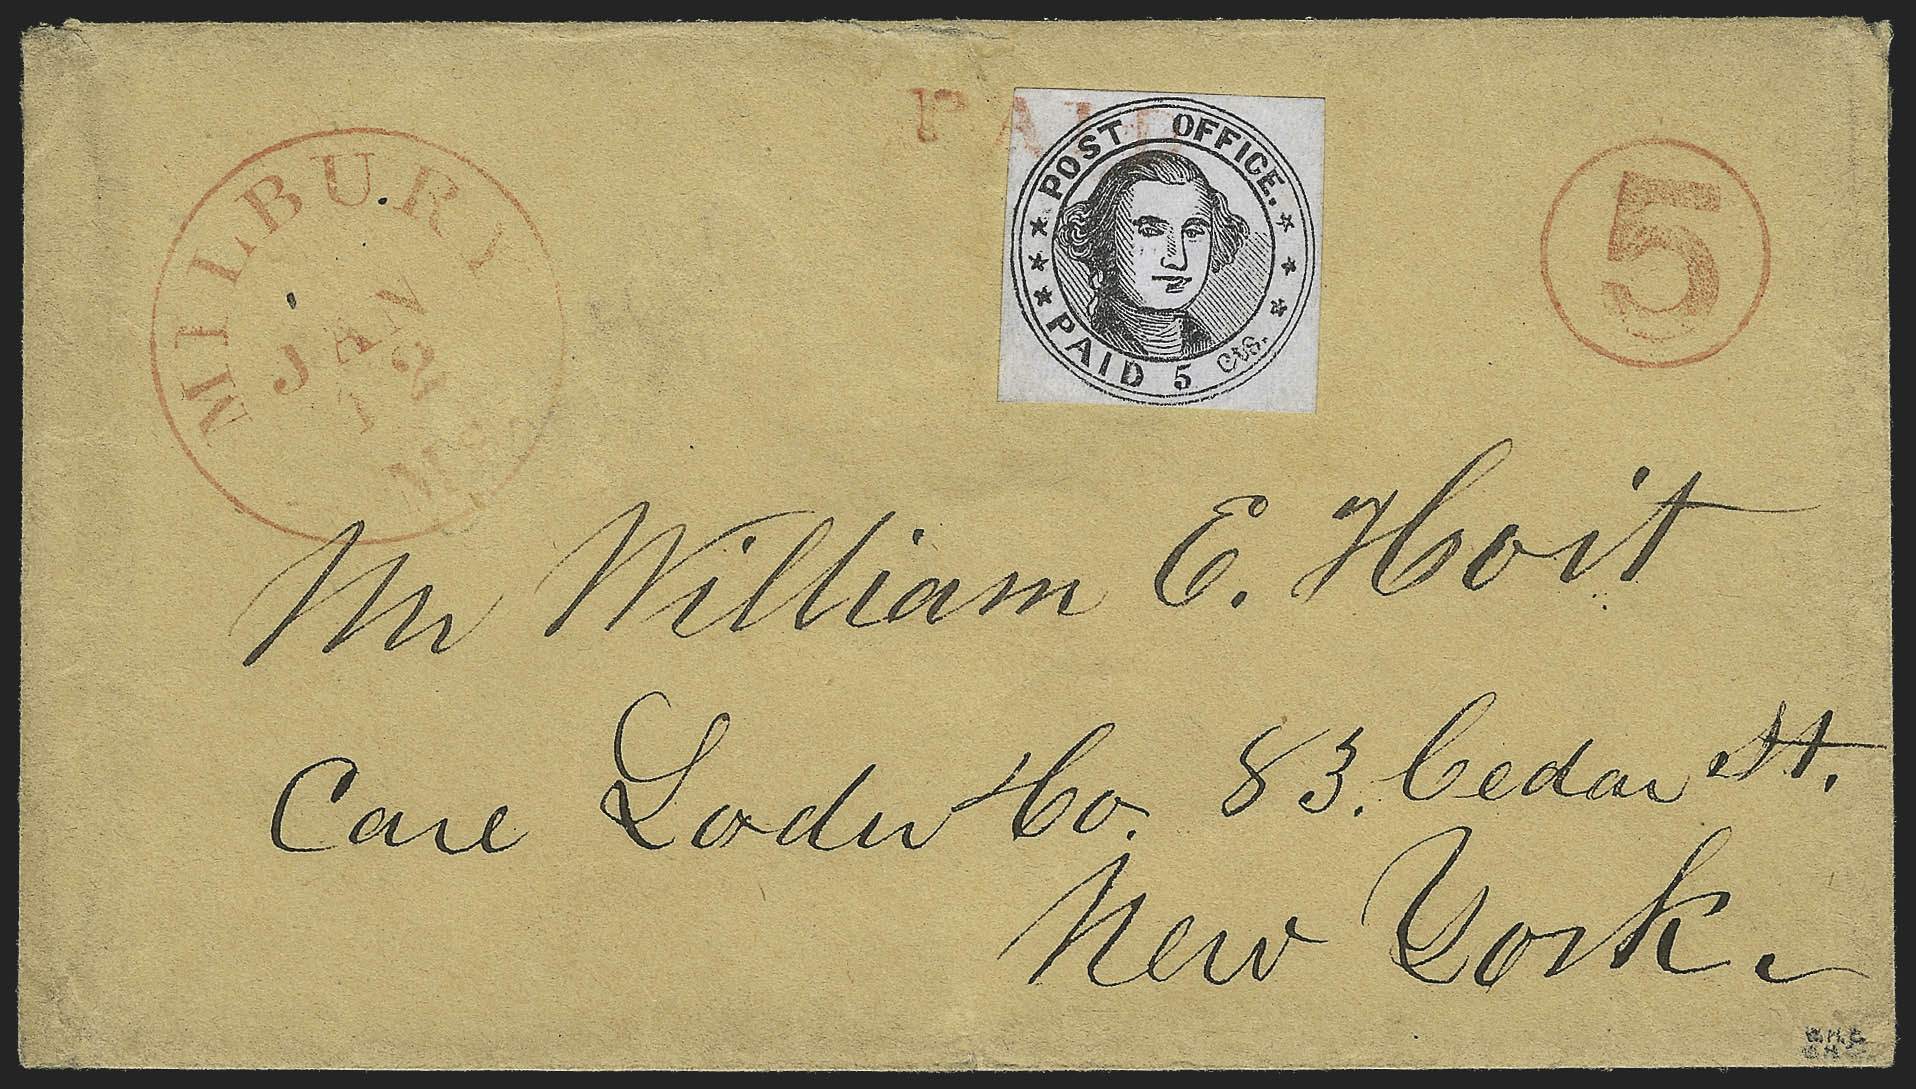 PAID
MILBURY
JAN
12
MS
POST OFFICE.
PAID 5 cts.
5
Mr William E. Hoit
Care Loder & Co. 83. Cedar St.
New York.